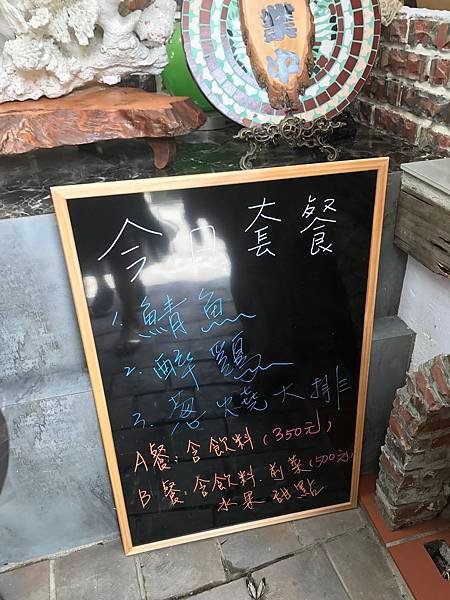 業中
今日套餐
1. 鯖魚
2. 醉雞
3. 蔥燒大排
A餐:含飲料(350元)
B餐:含飲料.前菜(500元)
水果 甜點